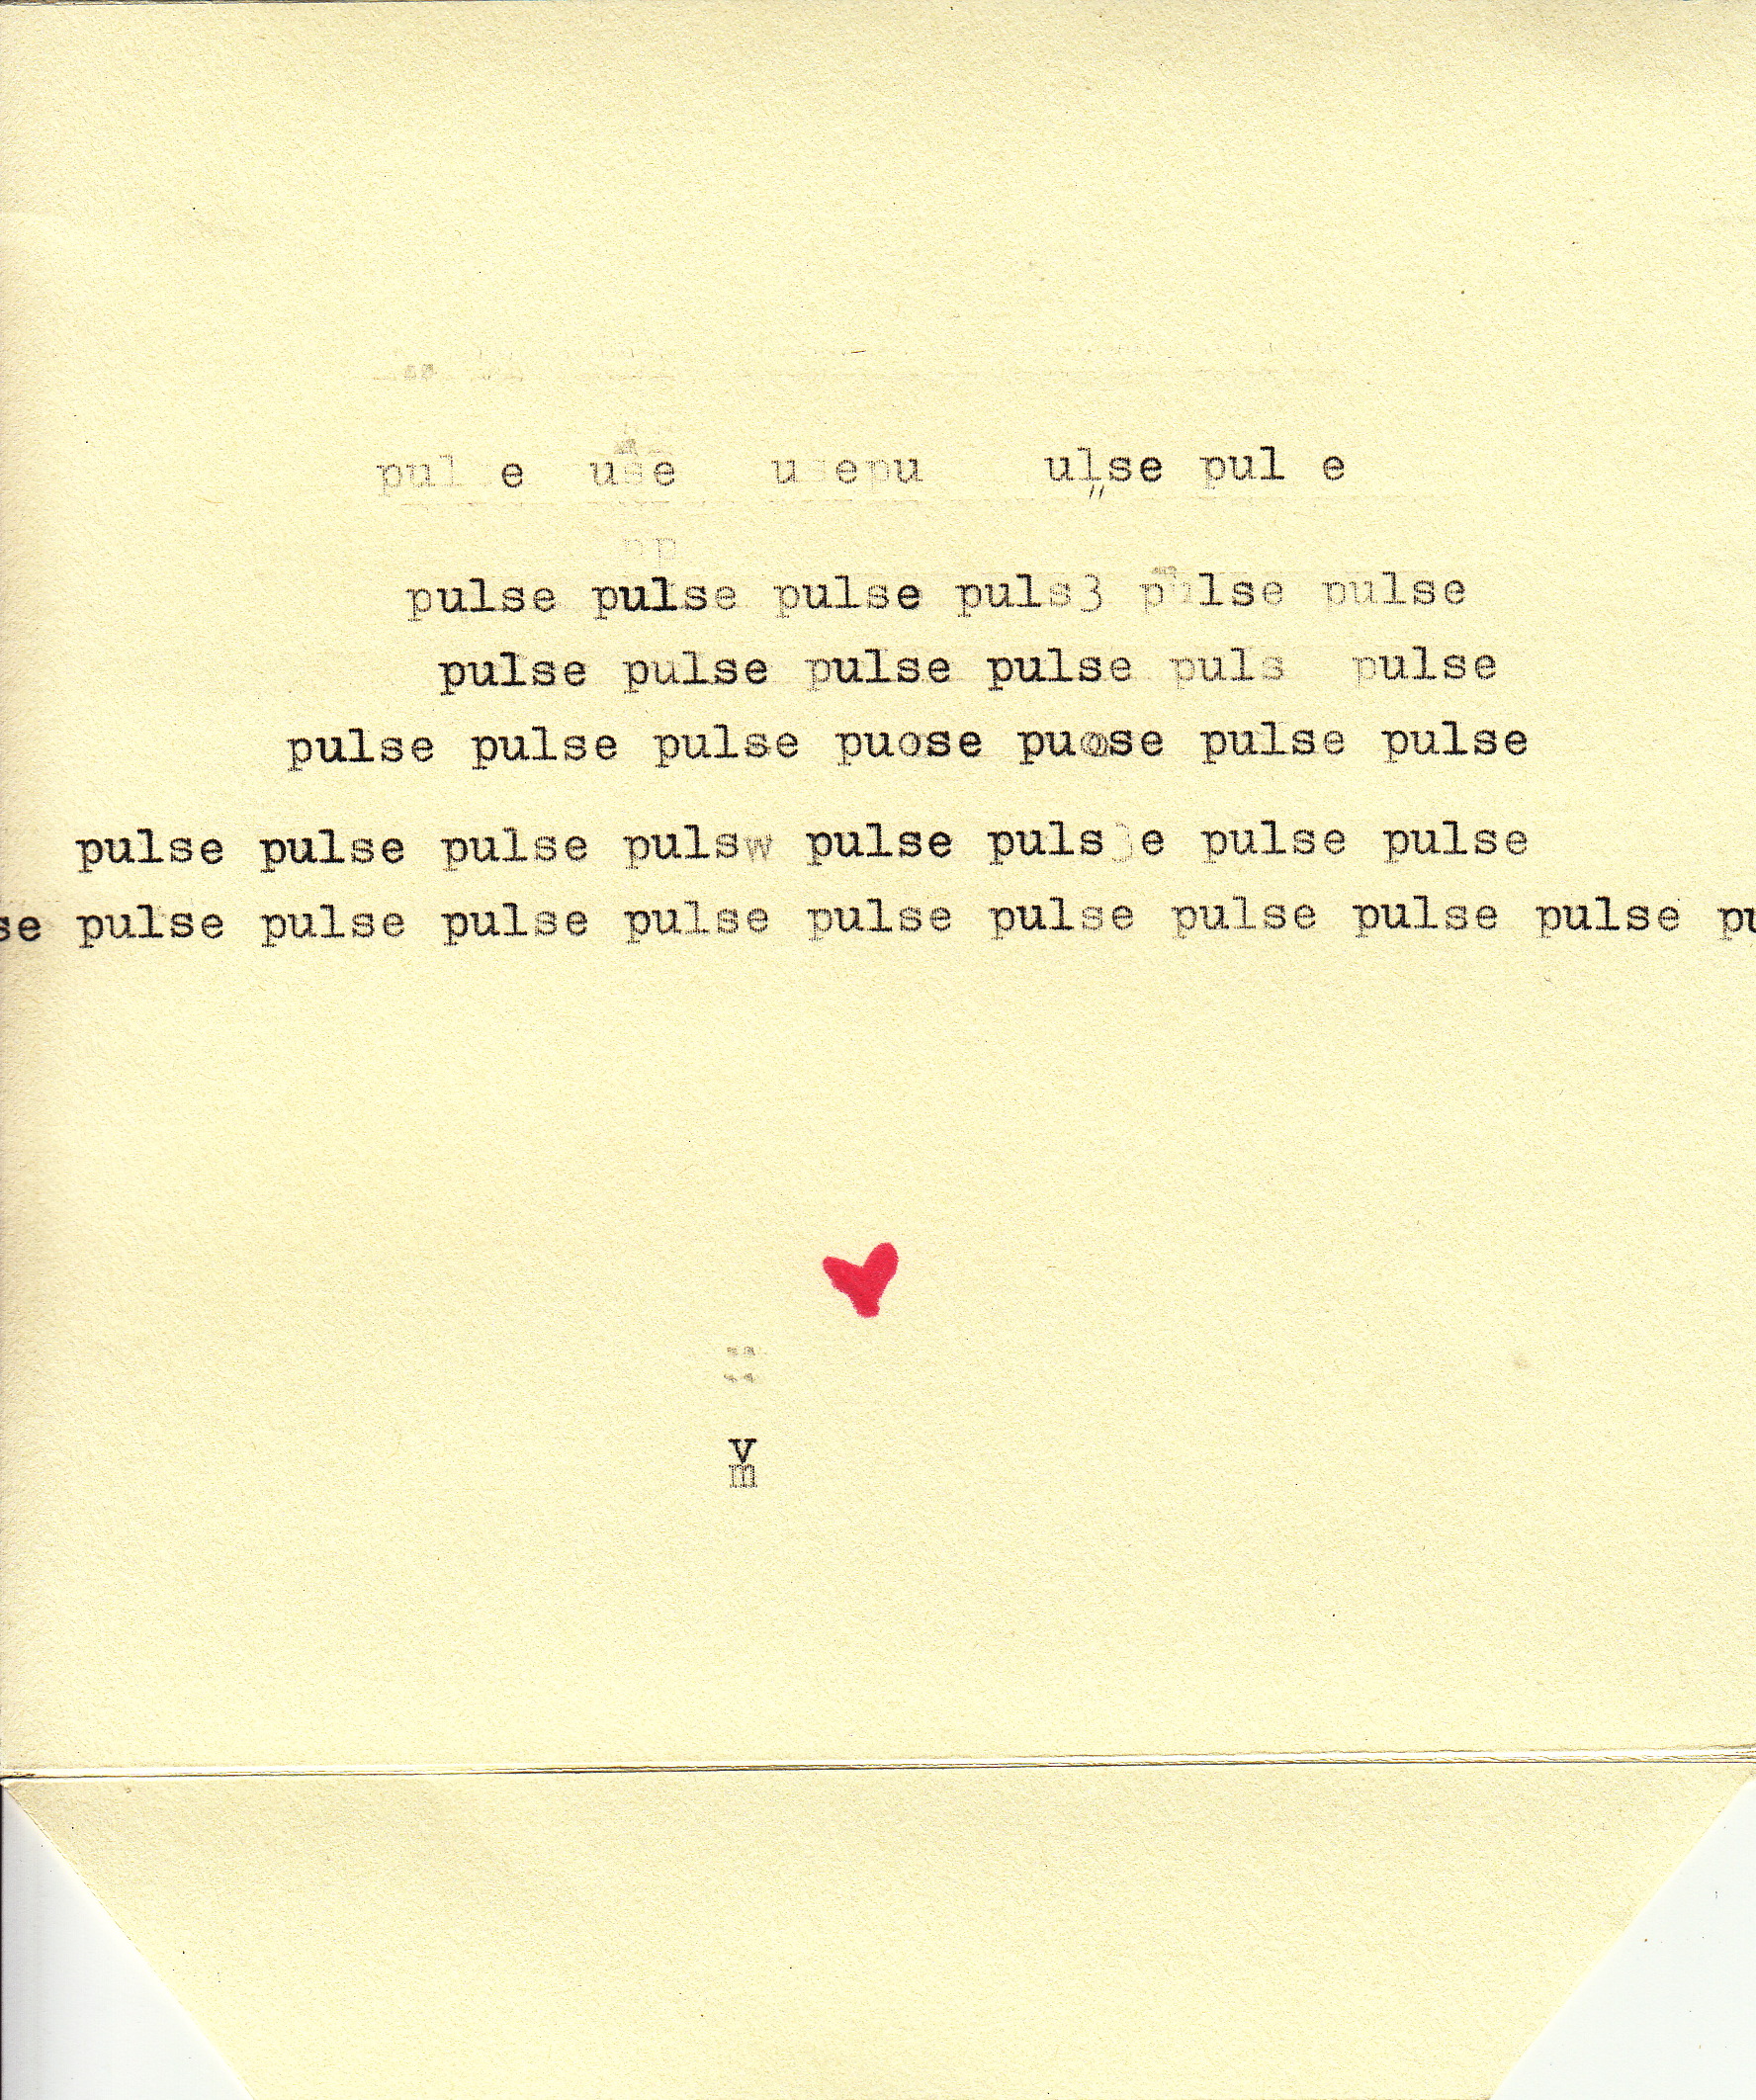 pul e use u sepu ulse pul e
pp
pulse pulse pulse puls3 pulse pulse
pulse pulse pulse pulse puls pulse
pulse pulse pulse puose puose pulse pulse
pulse pulse pulse pulsw pulse puls e pulse pulse
se pulse pulse pulse pulse pulse pulse pulse pulse pulse pu
v
m